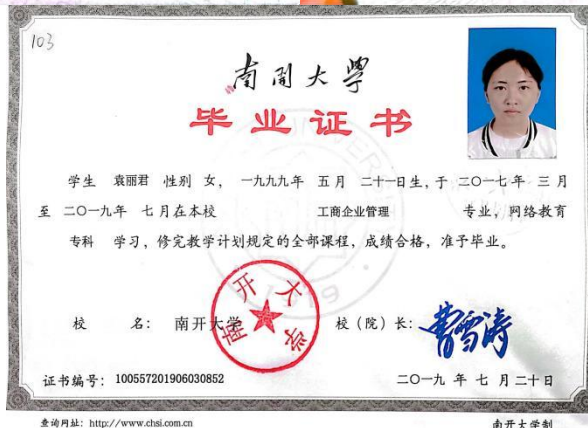 103
南開大學
毕业证书
学生 袁丽君 性别 女， 一九九九年 五月 二十一日生，于 二〇一七年 三月
至 二〇一九年 七月在本校 工商企业管理 专业，网络教育
专科 学习，修完教学计划规定的全部课程，成绩合格，准予毕业。
校 名： 南开大学 校（院）长： 曹雪涛
南开大学
证书编号： 100557201906030852 二〇一九 年 七 月 二十日
查询网址：http://www.chsi.com.cn 南开大学制